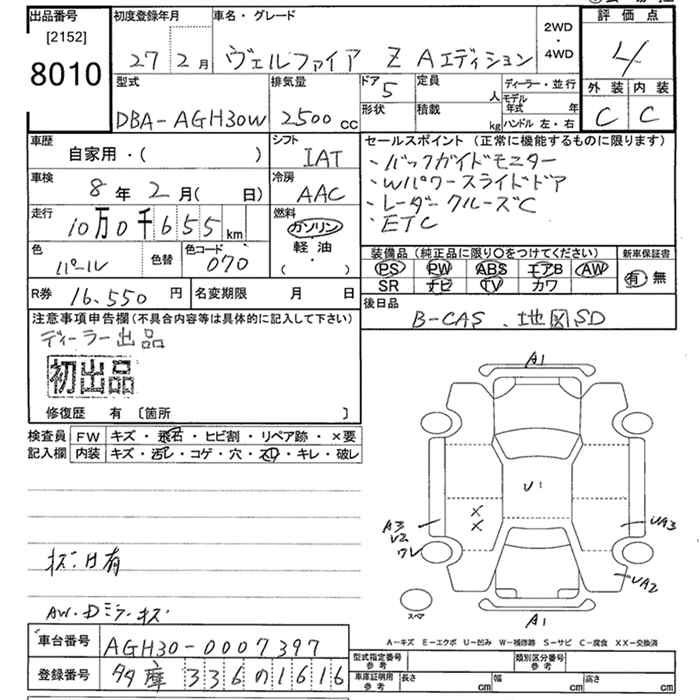 出品番号 初度登録年月 車名・グレード 2WD・4WD 評価点
[2152]
8010 27年2月 ヴェルファイア Z Aエディション 4
型式 排気量 ドア 5 定員 人 ディーラー・並行 外装 内装
DBA-AGH30W 2500cc 形状 積載 kg モデル年式 年 ハンドル 左・右 C C
車歴 自家用・( ) シフト IAT
車検 8年2月( 日) 冷房 AAC
走行 10万0千655km 燃料 ガソリン 軽油 ( ・ )
色 パール 色替 色コード 070
R券 16,550円 名変期限 月 日
セールスポイント(正常に機能するものに限ります)
・バックガイドモニター
・Wパワースライドドア
・レーダークルーズC
・ETC
装備品(純正品に限り○をつけてください) 新車保証書
PS PW ABS エアB AW 有・無
SR ナビ TV カワ
後日品
B-CAS、地図SD
注意事項申告欄(不具合内容等は具体的に記入して下さい)
ディーラー出品
初出品
修復歴 有 〔箇所 〕
検査員 FW キズ・飛石・ヒビ割・リペア跡・×要
記入欄 内装 キズ・汚レ・コゲ・穴・スレ・キレ・破レ
A1
U1
×
×
A3
UA3
UA2
スペア
A1
キズ、凹有
AW・Dミラーキズ
A-キズ E-エクボ U-凹み W-補修跡 S-サビ C-腐食 XX-交換済
車台番号 AGH30-0007397
登録番号 336の1616
型式指定番号 参考 類別区分番号 参考
車庫証明用 参考 長さ cm 幅 cm 高さ cm